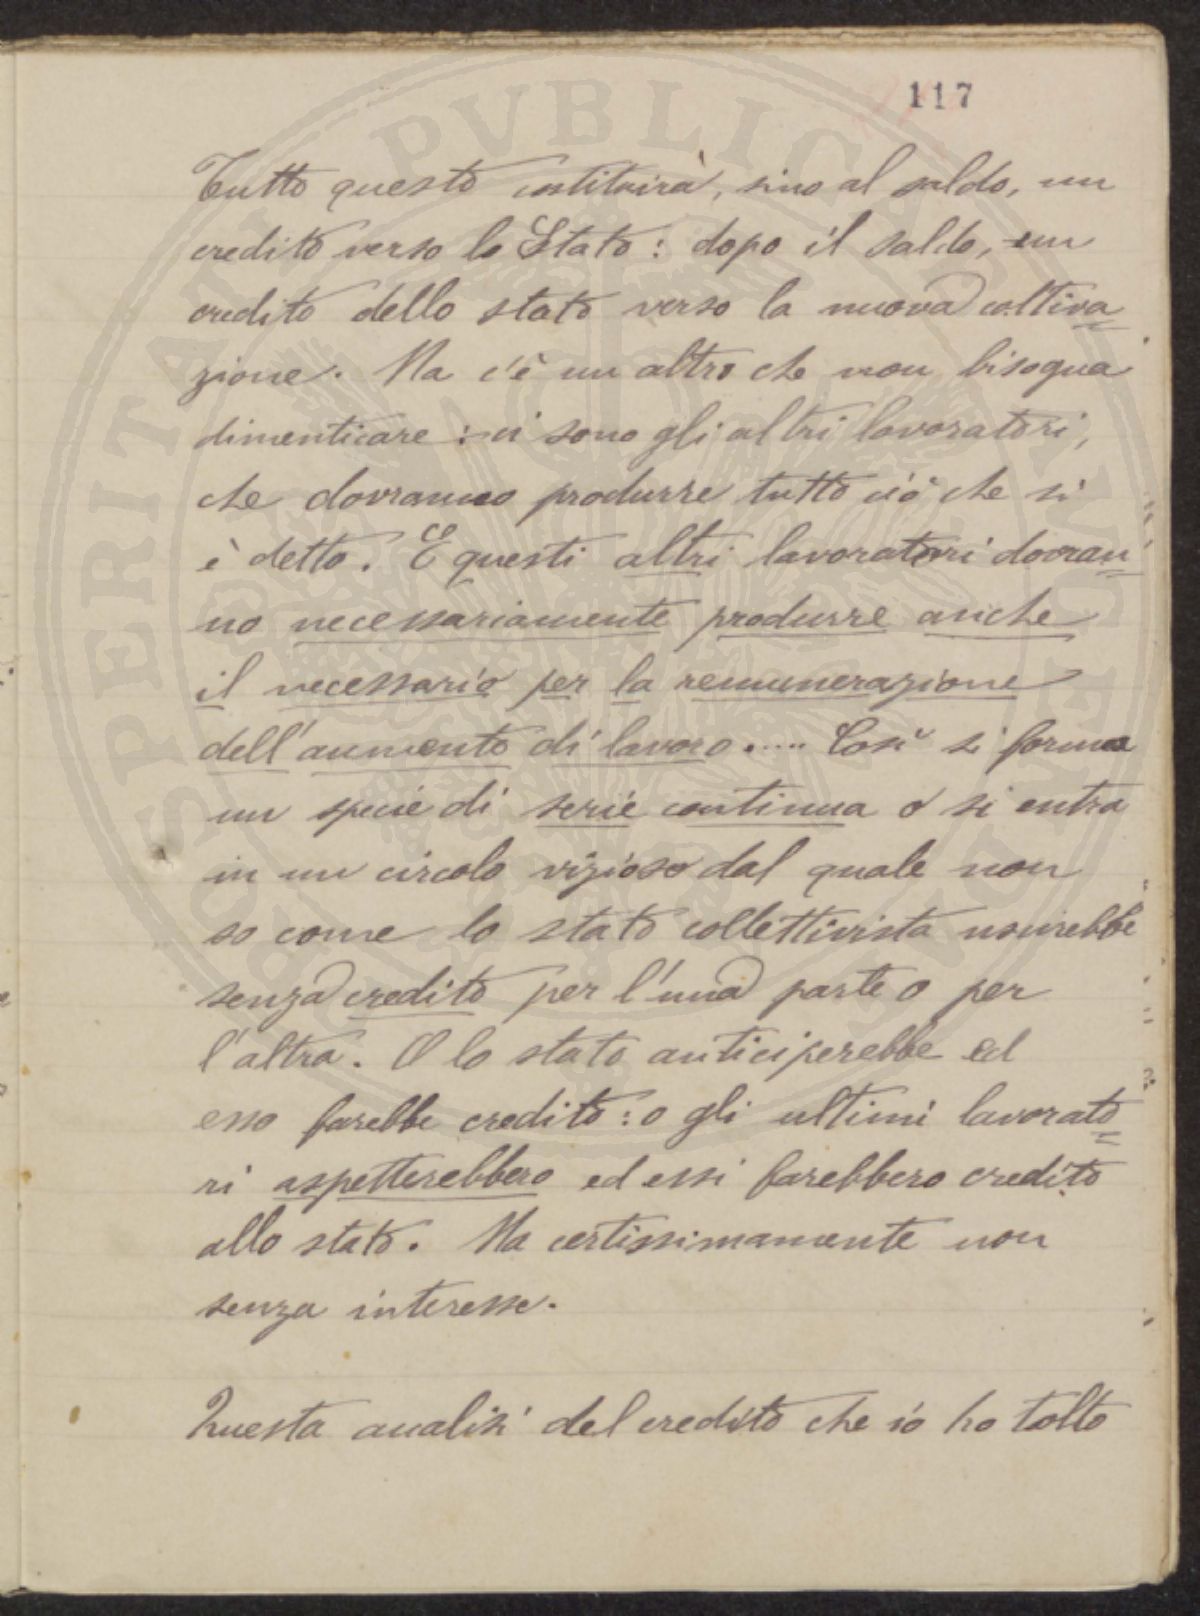 117
Tutto questo costituirà, sino al saldo, un
credito verso lo Stato: dopo il saldo, un
credito dello stato verso la nuova coltiva
zione. Ma c'è un altro che non bisogna
dimenticare: ci sono gli altri lavoratori,
che dovranno produrre tutto ciò che si
è detto. E questi altri lavoratori dovran
no necessariamente produrre anche
il necessario per la remunerazione
dell'aumento di lavoro..... Così si forma
un specie di serie continua o si entra
in un circolo vizioso dal quale non
so come lo stato collettivista uscirebbe
senza credito per l'una parte o per
l'altra. O lo stato anticiperebbe ed
esso farebbe credito: o gli ultimi lavorato
ri aspetterebbero ed essi farebbero credito
allo stato. Ma certissimamente non
senza interesse.
Questa analisi del credito che io ho tolto